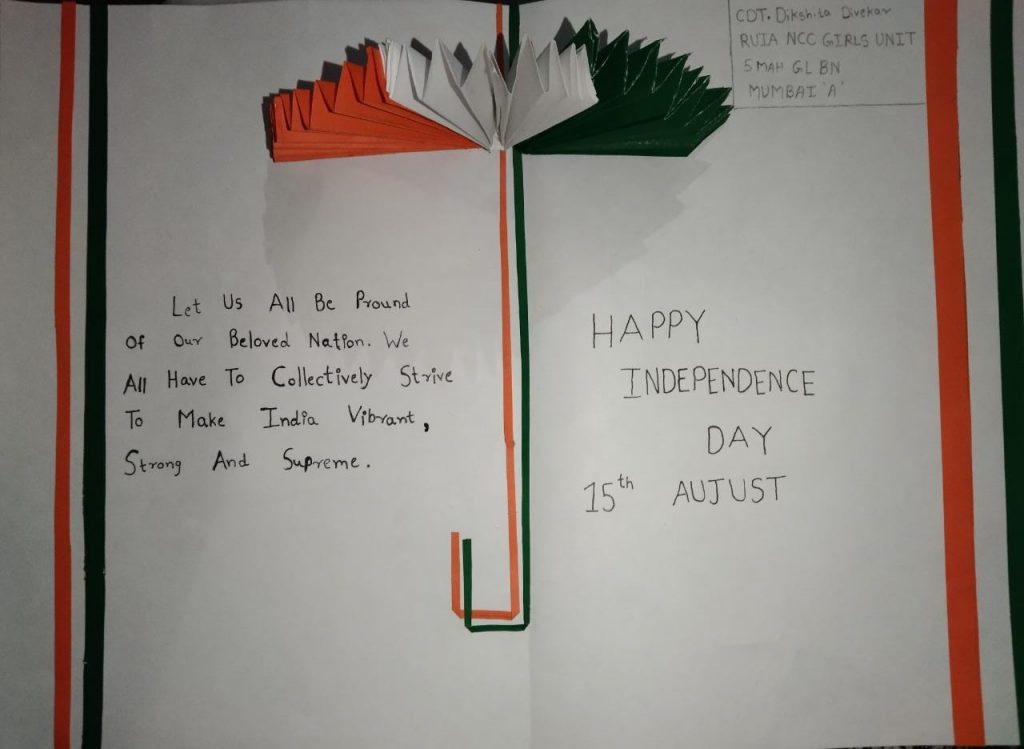 CDT. Dikshita Divekar
RUIA NCC GIRLS UNIT
5 MAH GL BN
MUMBAI 'A'
Let Us All Be Pround
Of Our Beloved Nation. We
All Have To Collectively Strive
To Make India Vibrant,
Strong And Supreme.
HAPPY
INDEPENDENCE
DAY
15th AUJUST